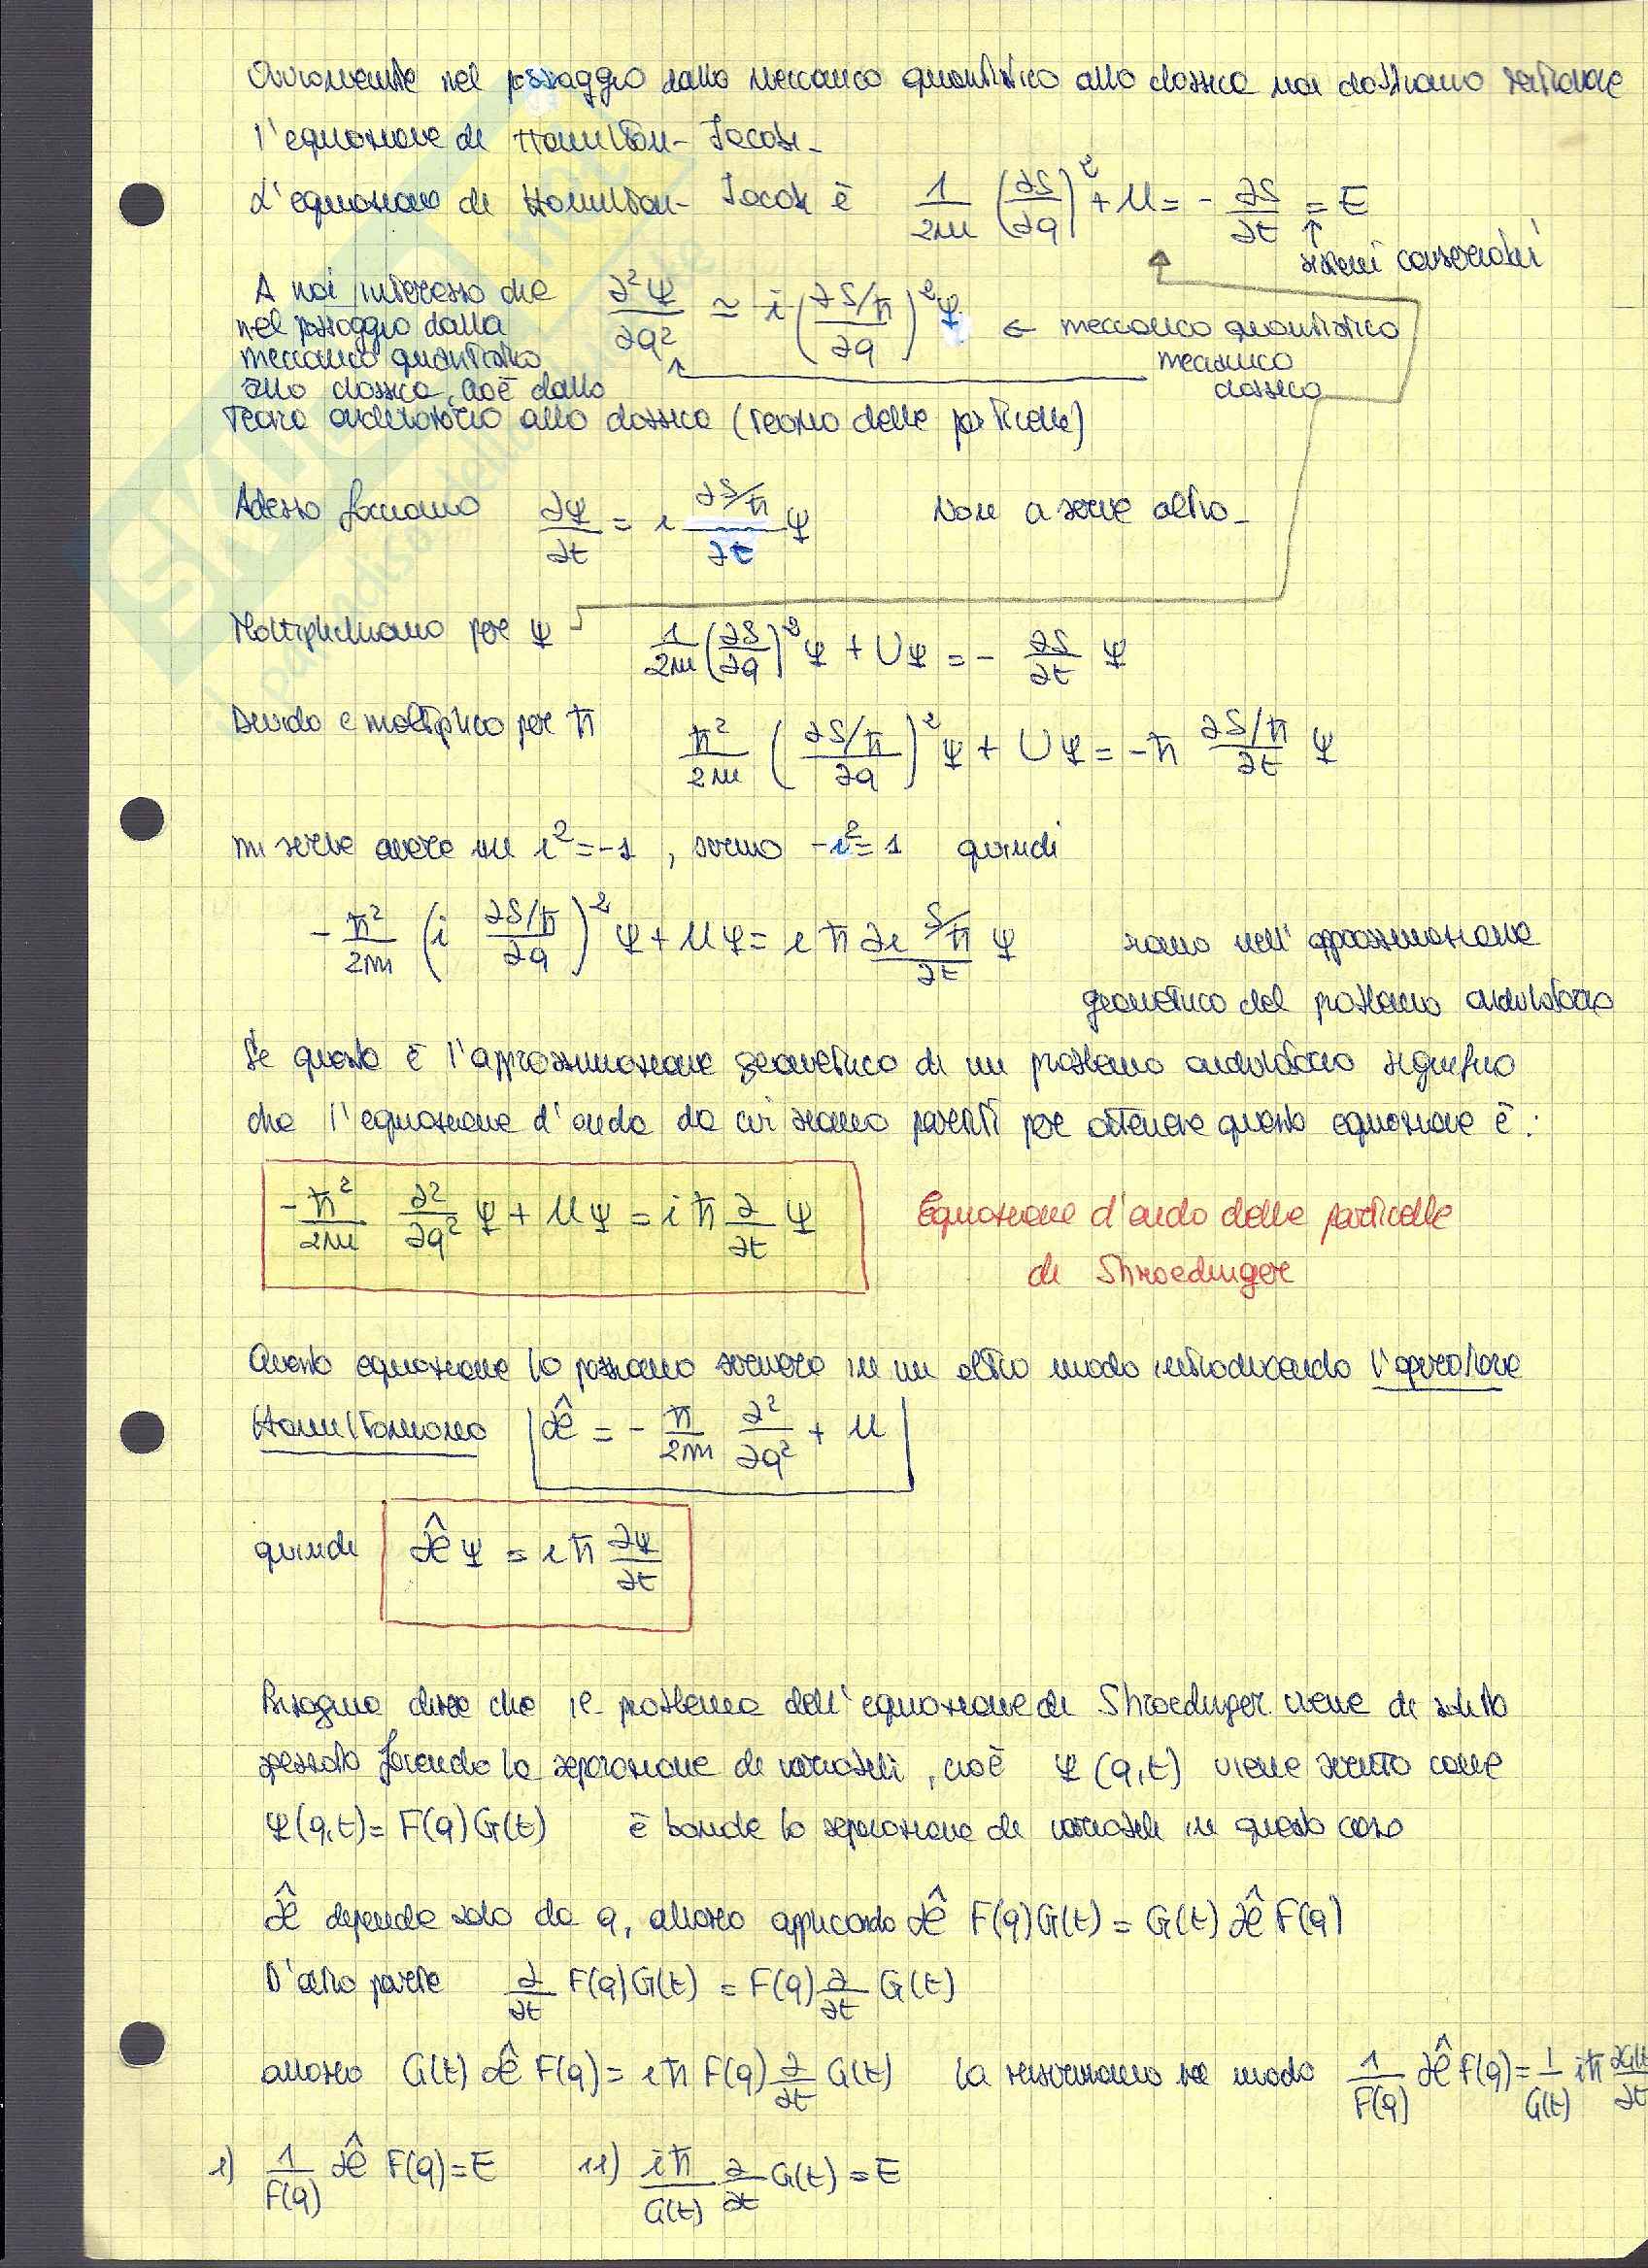 Ovviamente nel passaggio dalla meccanica quantistica alla classica noi dobbiamo ritrovare
l'equazione di Hamilton-Jacobi.
L'equazione di Hamilton-Jacobi è 1/2m (∂S/∂q)² + U = - ∂S/∂t = E
↑ sistemi conservativi
A noi interessa che ∂²Ψ/∂q² ≃ i(∂S/ħ/∂q)² Ψ ← meccanica quantistica
nel passaggio dalla
meccanica quantistica meccanica
alla classica, cioè dalla classica
teoria ondulatoria alla classica (teoria delle particelle)
Adesso facciamo ∂Ψ/∂t = i ∂S/ħ/∂t Ψ Non ci serve altro.
Moltiplichiamo per Ψ 1/2m (∂S/∂q)² Ψ + UΨ = - ∂S/∂t Ψ
Divido e moltiplico per ħ ħ²/2m (∂S/ħ/∂q)² Ψ + UΨ = -ħ ∂S/ħ/∂t Ψ
mi serve avere un i² = -1, scrivo -i² = 1 quindi
- ħ²/2m (i ∂S/ħ/∂q)² Ψ + UΨ = iħ ∂i S/ħ/∂t Ψ siamo nell'approssimazione
geometrica del problema ondulatorio
Se questa è l'approssimazione geometrica di un problema ondulatorio significa
che l'equazione d'onda da cui siamo partiti per ottenere questa equazione è:
-ħ²/2m ∂²/∂q² Ψ + UΨ = iħ ∂/∂t Ψ Equazione d'onda delle particelle
di Shroedinger
Questa equazione la possiamo scrivere in un altro modo introducendo l'operatore
Hamiltoniano Ĥ = - ħ/2m ∂²/∂q² + U
quindi ĤΨ = iħ ∂Ψ/∂t
Bisogna dire che il problema dell'equazione di Shroedinger viene di solito
spezzato facendo la separazione di variabili, cioè Ψ(q,t) viene scritta come
Ψ(q,t) = F(q)G(t) è banale la separazione di variabili in questo caso
Ĥ dipende solo da q, allora applicando Ĥ F(q)G(t) = G(t) Ĥ F(q)
D'altra parte ∂/∂t F(q)G(t) = F(q) ∂/∂t G(t)
allora G(t) Ĥ F(q) = iħ F(q) ∂/∂t G(t) la riscriviamo in modo 1/F(q) Ĥ F(q) = 1/G(t) iħ ∂G(t)/∂t
i) 1/F(q) Ĥ F(q) = E ii) iħ/G(t) ∂/∂t G(t) = E